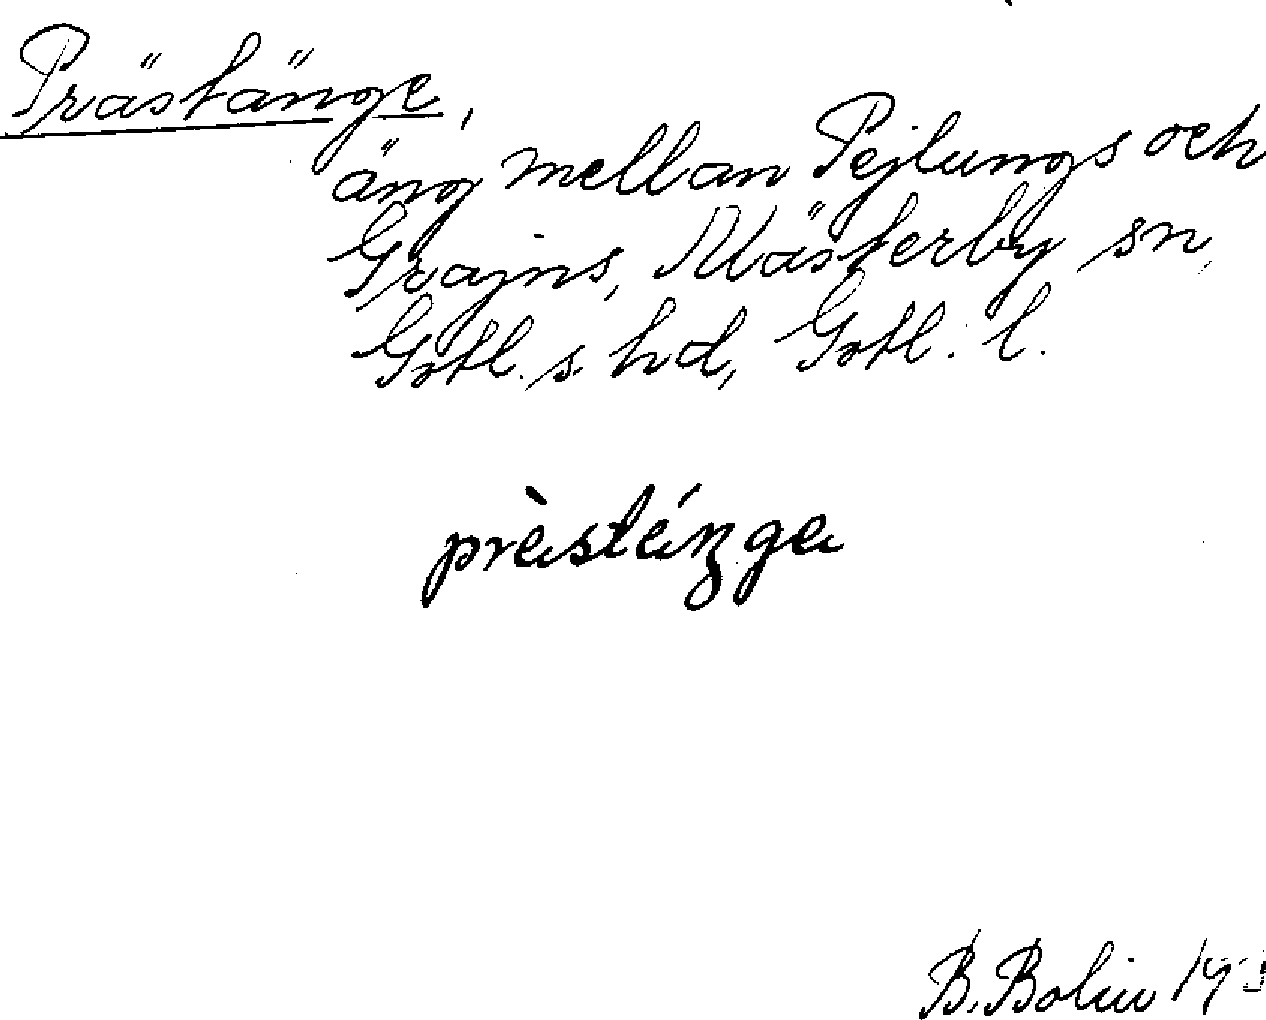 Prästänge,
äng mellan Pejlungs och
Grajns, Mästerby sn,
Gotl. s. hd, Gotl. l.
prèsténga
B. Bolin